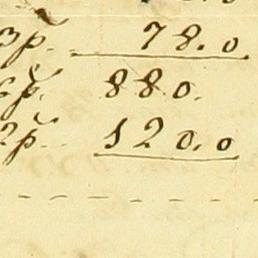 3p. 78.0
6p. 880.
2p. 120.0